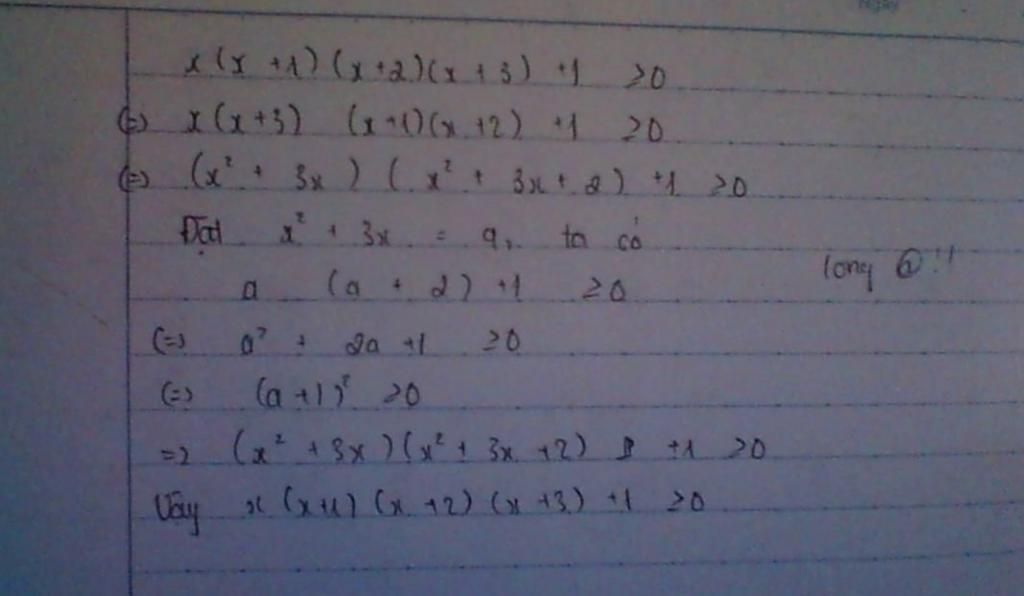 Ngày
x(x+1)(x+2)(x+3)+1 ≥0
(=) x(x+3) (x+1)(x+2) +1 ≥0
(=) (x² + 3x) (x² + 3x + 2) +1 ≥0
Đặt x² + 3x = a, ta có
a (a + 2) +1 ≥0
long @!!
(=) a² + 2a +1 ≥0
(=) (a+1)² ≥0
=> (x² + 3x)(x² + 3x +2) +1 ≥0
Vậy x(x+1)(x+2)(x+3)+1 ≥0